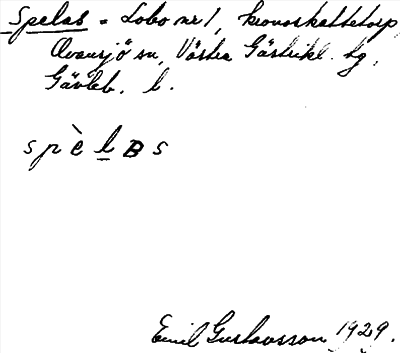 Spelas = Lobo nr 1, kronoskattetorp,
Ovansjö sn, Västra Gästrikl. hg,
Gävleb. l.
s p è l B s
Emil Gustavsson 1929.